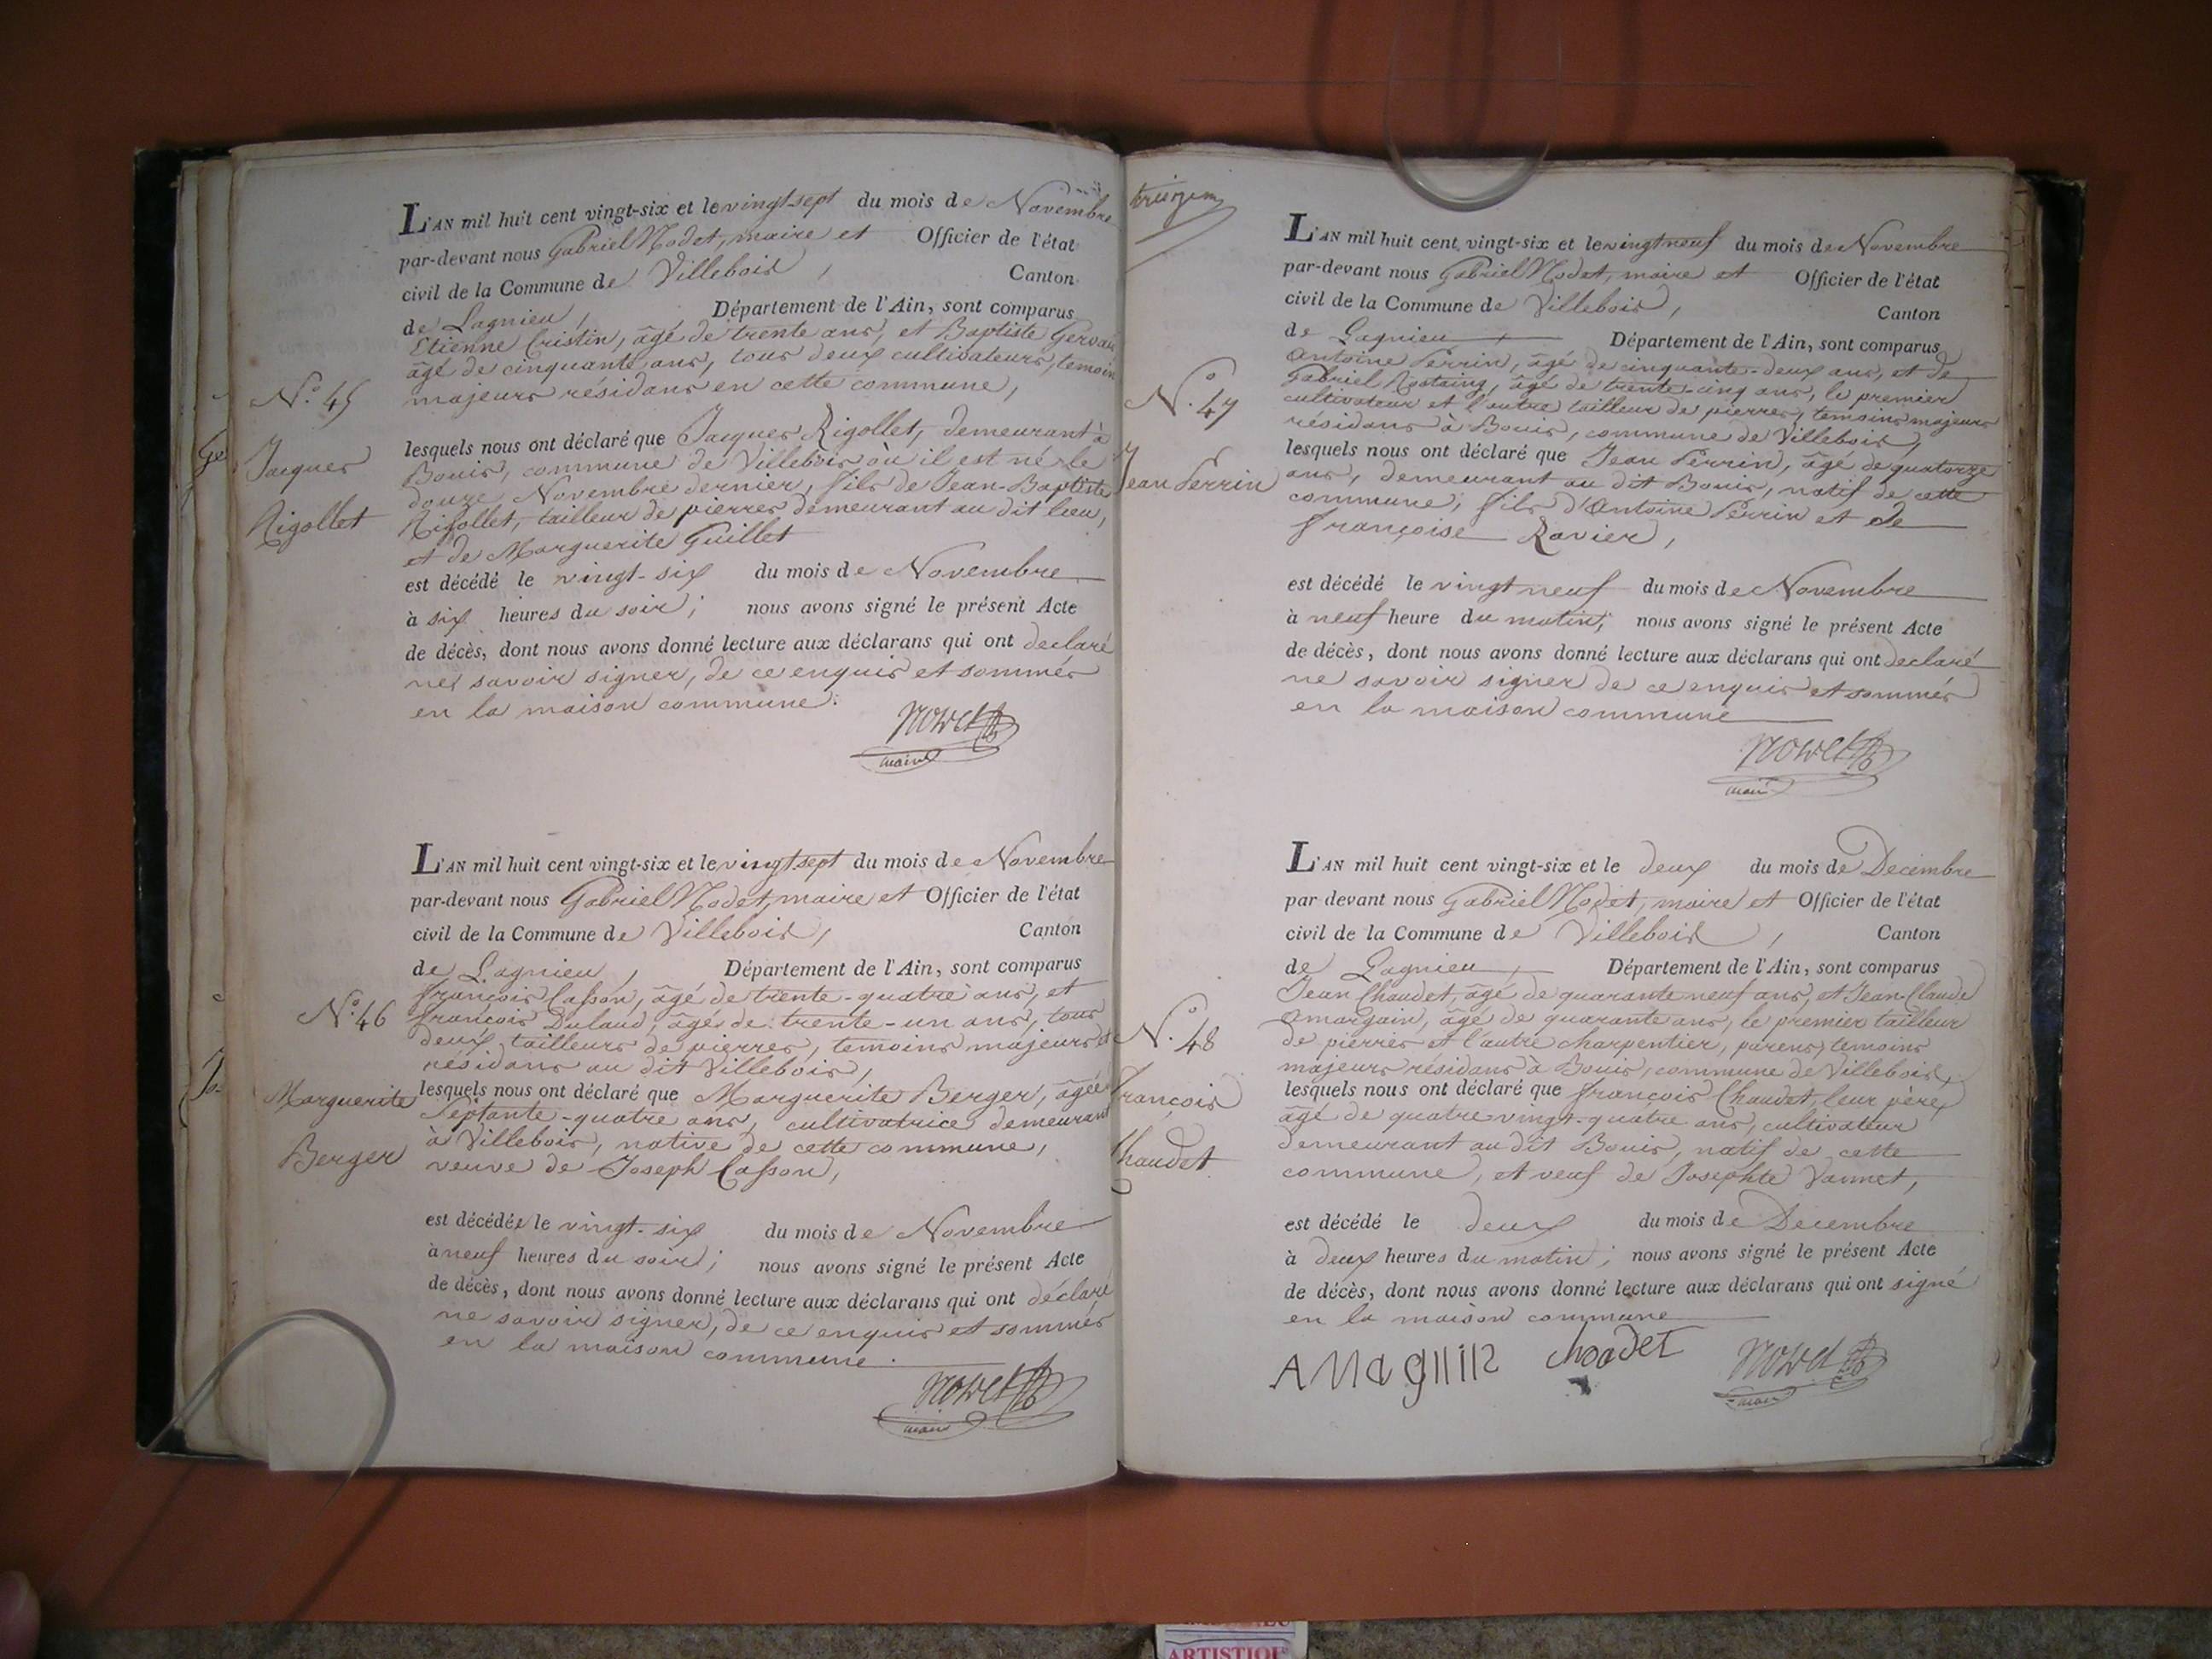 L'AN mil huit cent vingt-six et le vingt-sept du mois de Novembre
par-devant nous Gabriel Nodet, maire et Officier de l'état
civil de la Commune de Villebois, Canton
de Lagnieu, Département de l'Ain, sont comparus
Etienne Cristin, âgé de trente ans, et Baptiste Gervais
âgé de cinquante ans, tous deux cultivateurs, temoins
majeurs résidans en cette commune,
N.° 45
lesquels nous ont déclaré que Jacques Rigollet, demeurant à
Jacques
Bouis, commune de Villebois où il est né le
douze Novembre dernier, fils de Jean-Baptiste
Rigollet
Rigollet, tailleur de pierres demeurant au dit lieu,
et de Marguerite Guillet
est décédé le vingt-six du mois de Novembre
à six heures du soir; nous avons signé le présent Acte
de décès, dont nous avons donné lecture aux déclarans qui ont declaré
ne savoir signer, de ce enquis et sommés
en la maison commune.
maire
L'AN mil huit cent vingt-six et le vingt-sept du mois de Novembre
par-devant nous Gabriel Nodet, maire et Officier de l'état
civil de la Commune de Villebois, Canton
de Lagnieu, Département de l'Ain, sont comparus
françois Casson, âgé de trente-quatre ans, et
N.° 46
françois Dulaud, âgé de trente-un ans, tous
deux tailleurs de pierres, temoins majeurs et
résidans au dit Villebois,
lesquels nous ont déclaré que Marguerite Berger, âgée
Marguerite
septante-quatre ans, cultivatrice demeurant
à Villebois, native de cette commune,
Berger
veuve de Joseph Casson,
est décédée le vingt-six du mois de Novembre
à neuf heures du soir; nous avons signé le présent Acte
de décès, dont nous avons donné lecture aux déclarans qui ont déclaré
ne savoir signer, de ce enquis et sommés
en la maison commune.
maire
L'AN mil huit cent vingt-six et le vingt neuf du mois de Novembre
par-devant nous Gabriel Nodet, maire et Officier de l'état
civil de la Commune de Villebois, Canton
de Lagnieu Département de l'Ain, sont comparus
Antoine Perrin, âgé de cinquante-deux ans, et de
Gabriel Rostaing, âgé de trente-cinq ans, le premier
N.° 47
cultivateur et l'autre tailleur de pierres, temoins majeurs
résidans à Bouis, commune de Villebois,
lesquels nous ont déclaré que Jean Perrin, âgé de quatorze
Jean Perrin
ans, demeurant au dit Bouis, natif de cette
commune, fils d'Antoine Perrin et de
françoise Ravier,
est décédé le vingt neuf du mois de Novembre
à neuf heure du matin; nous avons signé le présent Acte
de décès, dont nous avons donné lecture aux déclarans qui ont declaré
ne savoir signer de ce enquis et sommés
en la maison commune
maire
L'AN mil huit cent vingt-six et le deux du mois de Decembre
par devant nous Gabriel Nodet, maire et Officier de l'état
civil de la Commune de Villebois, Canton
de Lagnieu, Département de l'Ain, sont comparus
Jean Chaudet, âgé de quarante neuf ans, et Jean-Claude
amargain, âgé de quarante ans, le premier tailleur
N.° 48
de pierres et l'autre charpentier, parens, temoins
majeurs résidans à Bouis, commune de Villebois,
lesquels nous ont déclaré que françois Chaudet, leur père,
françois
âgé de quatre vingt-quatre ans, cultivateur
demeurant au dit Bouis, natif de cette
Chaudet
commune, et veuf de Josephte Vannet,
est décédé le deux du mois de Decembre
à deux heures du matin; nous avons signé le présent Acte
de décès, dont nous avons donné lecture aux déclarans qui ont signé
en la maison commune
chaudet
maire